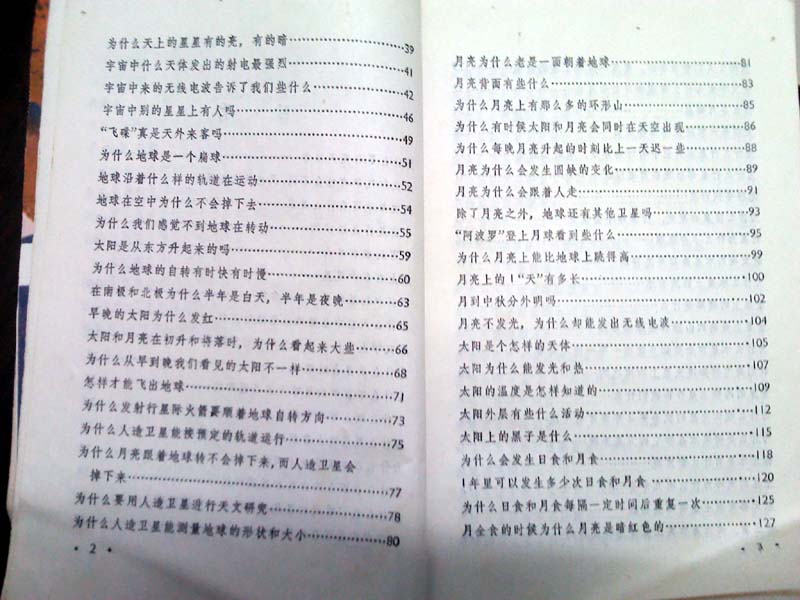 为什么天上的星星有的亮，有的暗……39
宇宙中什么天体发出的射电最强烈……41
宇宙中来的无线电波告诉了我们些什么……42
宇宙中别的星星上有人吗……46
“飞碟”真是天外来客吗……49
为什么地球是一个扁球……51
地球沿着什么样的轨道在运动……52
地球在空中为什么不会掉下去……54
为什么我们感觉不到地球在转动……55
太阳是从东方升起来的吗……59
为什么地球的自转有时快有时慢……60
在南极和北极为什么半年是白天，半年是夜晚……63
早晚的太阳为什么发红……65
太阳和月亮在初升和将落时，为什么看起来大些……66
为什么从早到晚我们看见的太阳不一样……68
怎样才能飞出地球……71
为什么发射行星际火箭要顺着地球自转方向……73
为什么人造卫星能按预定的轨道运行……75
为什么月亮跟着地球转不会掉下来,而人造卫星会
掉下来……77
为什么要用人造卫星进行天文研究……78
为什么人造卫星能测量地球的形状和大小……80
• 2 •
月亮为什么老是一面朝着地球……81
月亮背面有些什么……83
为什么月亮上有那么多的环形山……85
为什么有时候太阳和月亮会同时在天空出现……86
为什么每晚月亮升起的时刻比上一天迟一些……88
月亮为什么会发生圆缺的变化……89
月亮为什么会跟着人走……91
除了月亮之外，地球还有其他卫星吗……93
“阿波罗”登上月球看到些什么……95
为什么月亮上能比地球上跳得高……99
月亮上的1“天”有多长……100
月到中秋分外明吗……102
月亮不发光，为什么却能发出无线电波……104
太阳是个怎样的天体……105
太阳为什么能发光和热……107
太阳的温度是怎样知道的……109
太阳外层有些什么活动……112
太阳上的黑子是什么……115
为什么会发生日食和月食……118
1年里可以发生多少次日食和月食……120
为什么日食和月食每隔一定时间后重复一次……125
月全食的时候为什么月亮是暗红色的……127
• 3 •